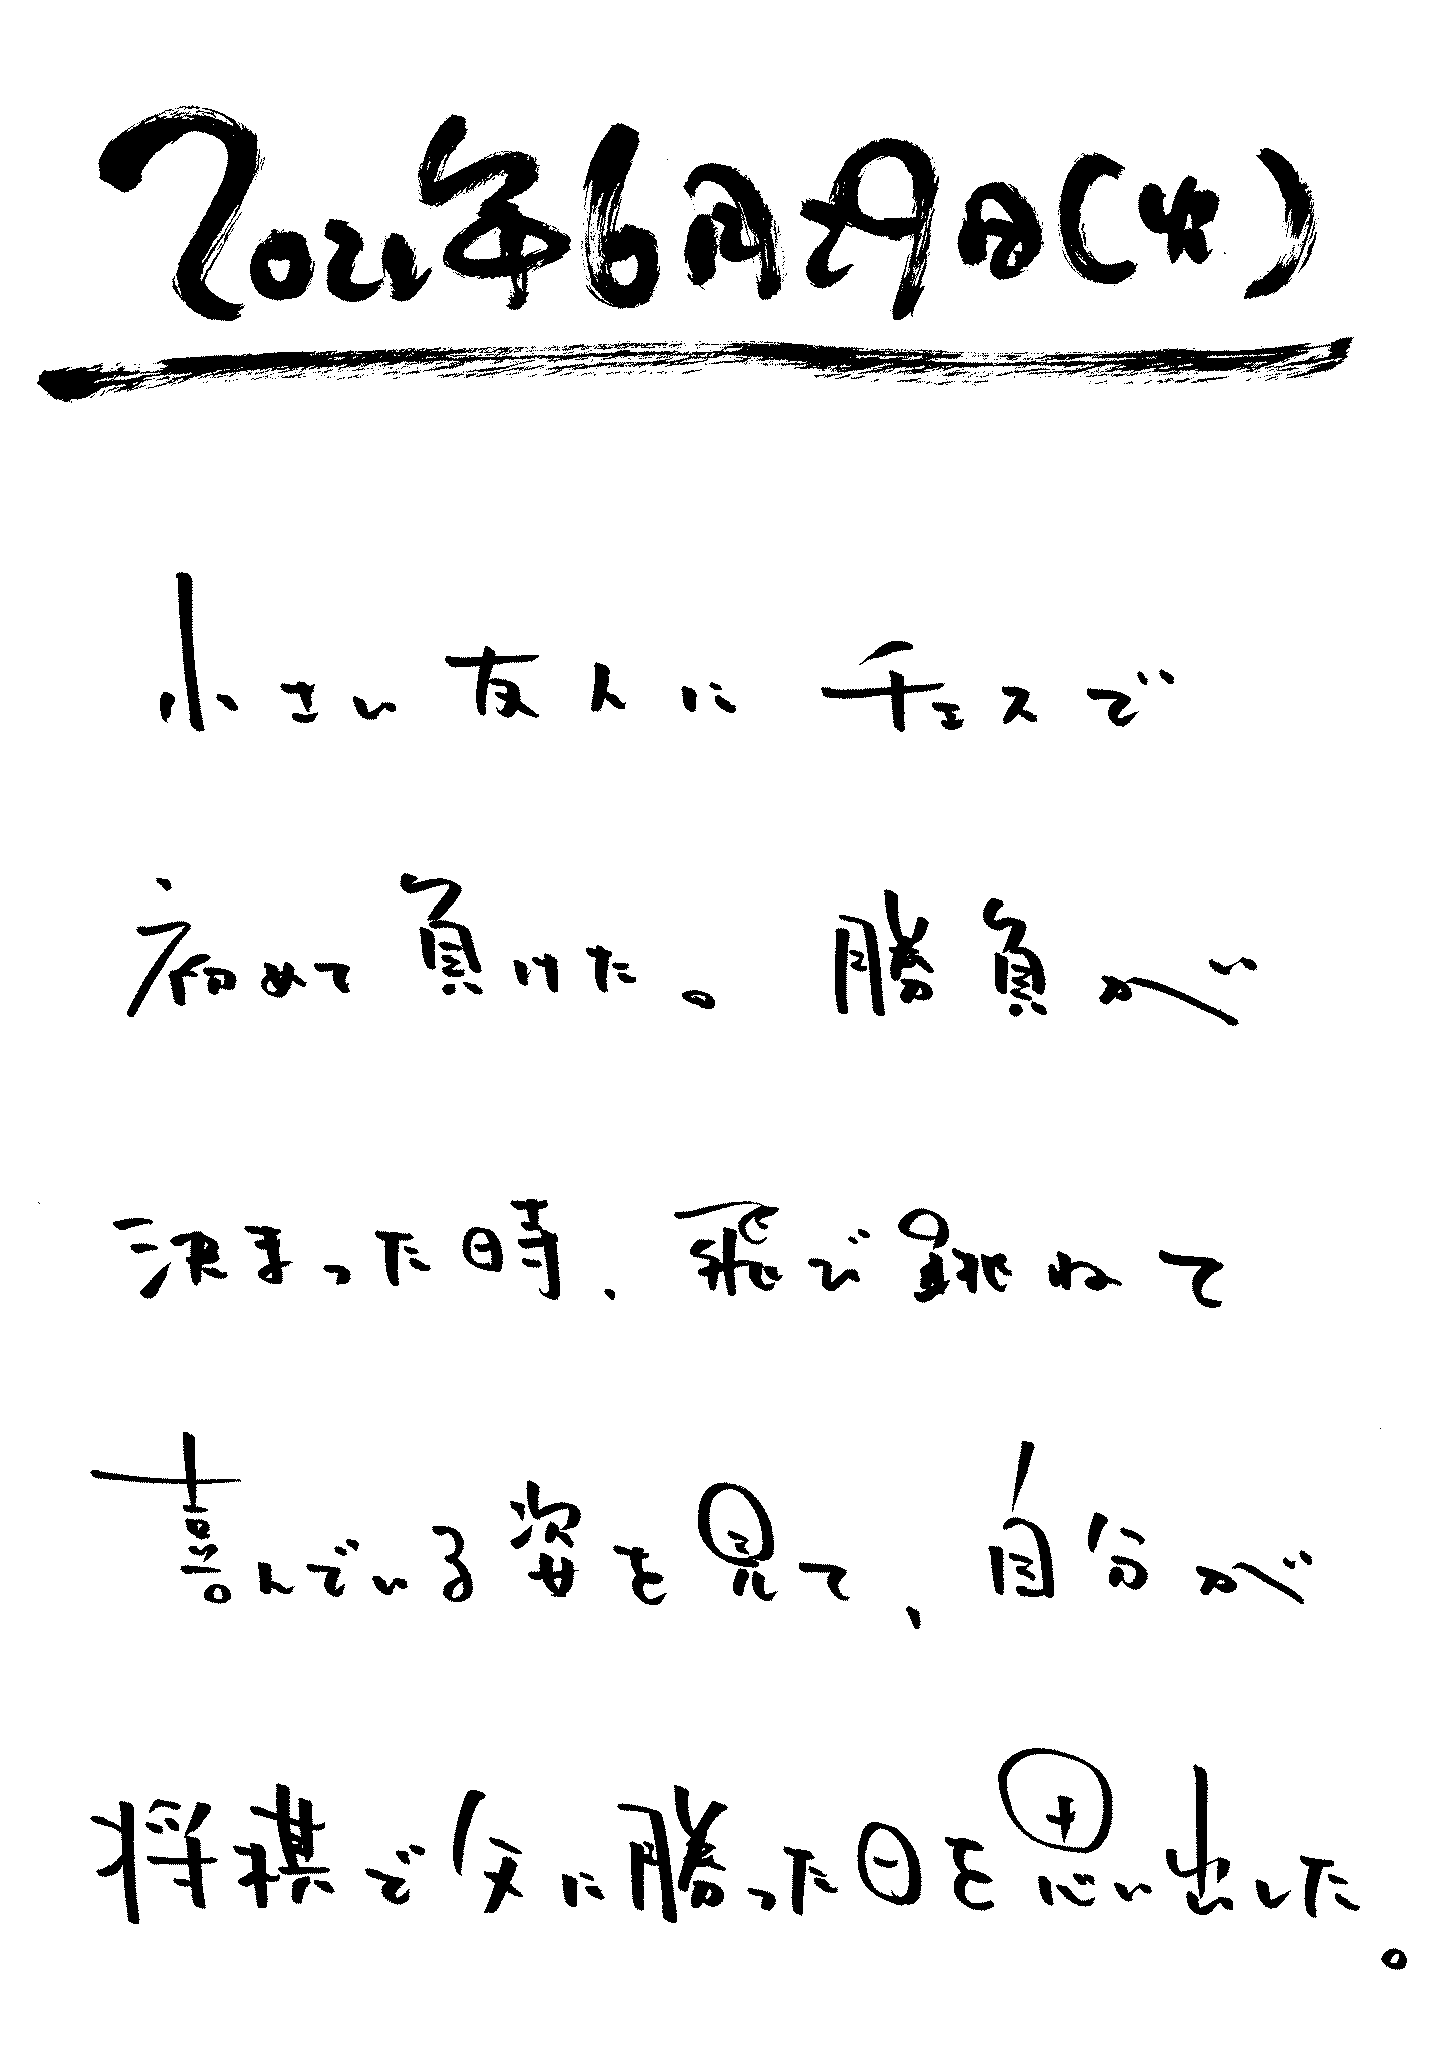 2021年6月29日(火)
小さい友人にチェスで
初めて負けた。勝負が
決まった時、飛び跳ねて
喜んでいる姿を見て、自分が
将棋で父に勝った日を思い出した。